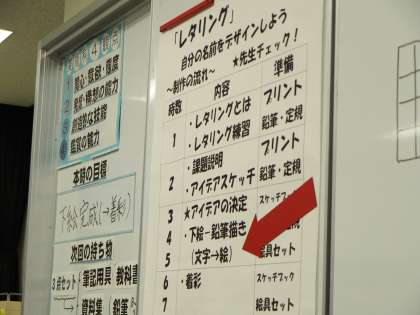 「レタリング」
自分の名前をデザインしよう
～制作の流れ～ ★先生チェック！
時数 内容 準備
1 ・レタリングとは プリント
・レタリング練習 鉛筆・定規
2 ・課題説明 プリント
・アイデアスケッチ 鉛筆・定規
3 ★アイデアの決定 スケッチブック
4 ・下絵－鉛筆描き
5 （文字→絵） 絵具セット
6 ・着彩 スケッチブック
7 絵具セット
1 関心・意欲・態度
2 発想・構想の能力
3 創造的な技能
4 鑑賞の能力
本時の目標
下絵完成（→着彩）
次回の持ち物
3点セット 筆記用具 教科書
資料集 鉛筆